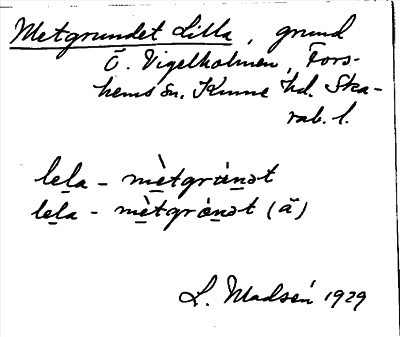 Metgrundet Lilla, grund
Ö. Vigelholmen, Fors-
hems sn. Kinne hd. Ska-
rab. l.
lela - mètgrúnət
lela - mètgrónət (å)
L. Madsén 1929